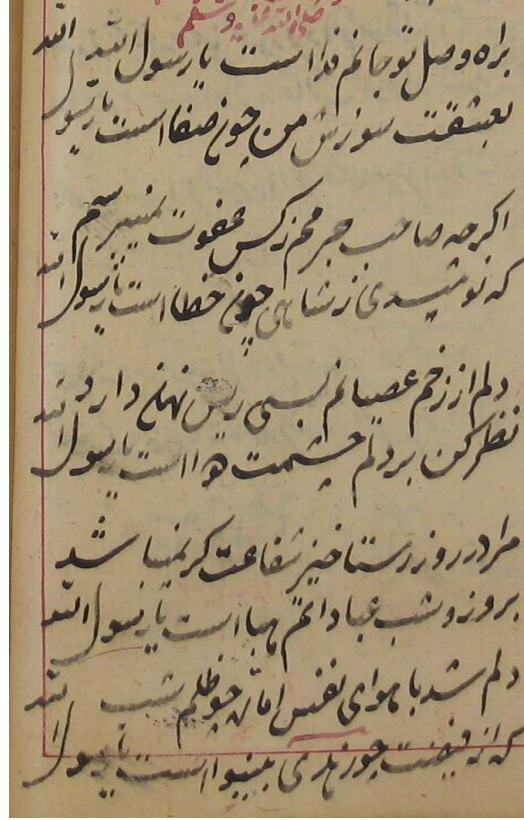 صلی الله علیه وسلم
براه وصل تو جانم فدا است یا رسول الله
بعشقت سوزش من چون صفا است یا رسول الله
اکرچه صاحب جرمم ز کس عفوت نمیپرسم
که نومیدی ز شاهی چون خطا است یا رسول الله
دلم از زخم عصیانم بسی ریش نهان دارد
نظر کن بر دلم چشمت دوا است یا رسول الله
مرا در روز رستاخیز شفاعت کر نمیباشد
بروز و شب عباداتم هبا است یا رسول الله
دلم شد با هوای نفس اماره چو ظلم شب
که از فیضت چون بینوا است یا رسول الله